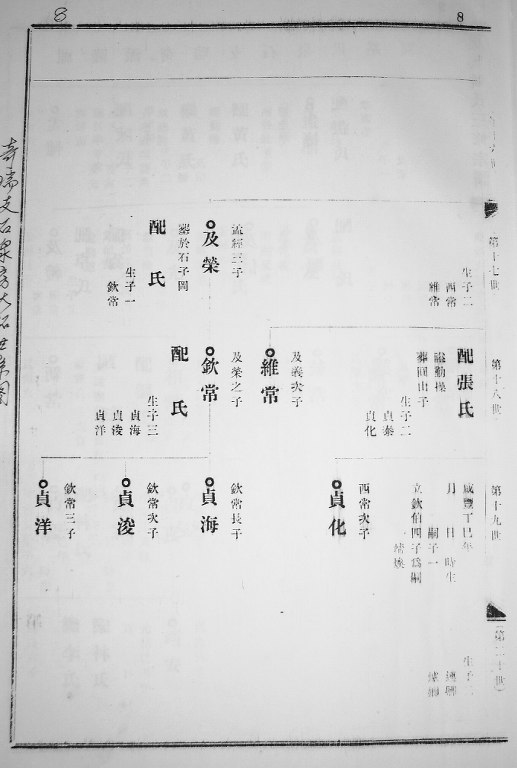 8
8
第十七世
生子二
西常
維常
孟經三子
及榮
葬於石子岡
配 氏
生子一
欽常
第十八世
配張氏
諡勤操
葬回山子
生子二
貞泰
貞化
及義次子
維常
及榮之子
欽常
配 氏
生子三
貞海
貞浚
貞洋
第十九世
咸豐丁巳年
月 日 時生
嗣子一
立欽伯四子為嗣
西常次子
貞化
欽常長子
貞海
欽常次子
貞浚
欽常三子
貞洋
第二十世
生子